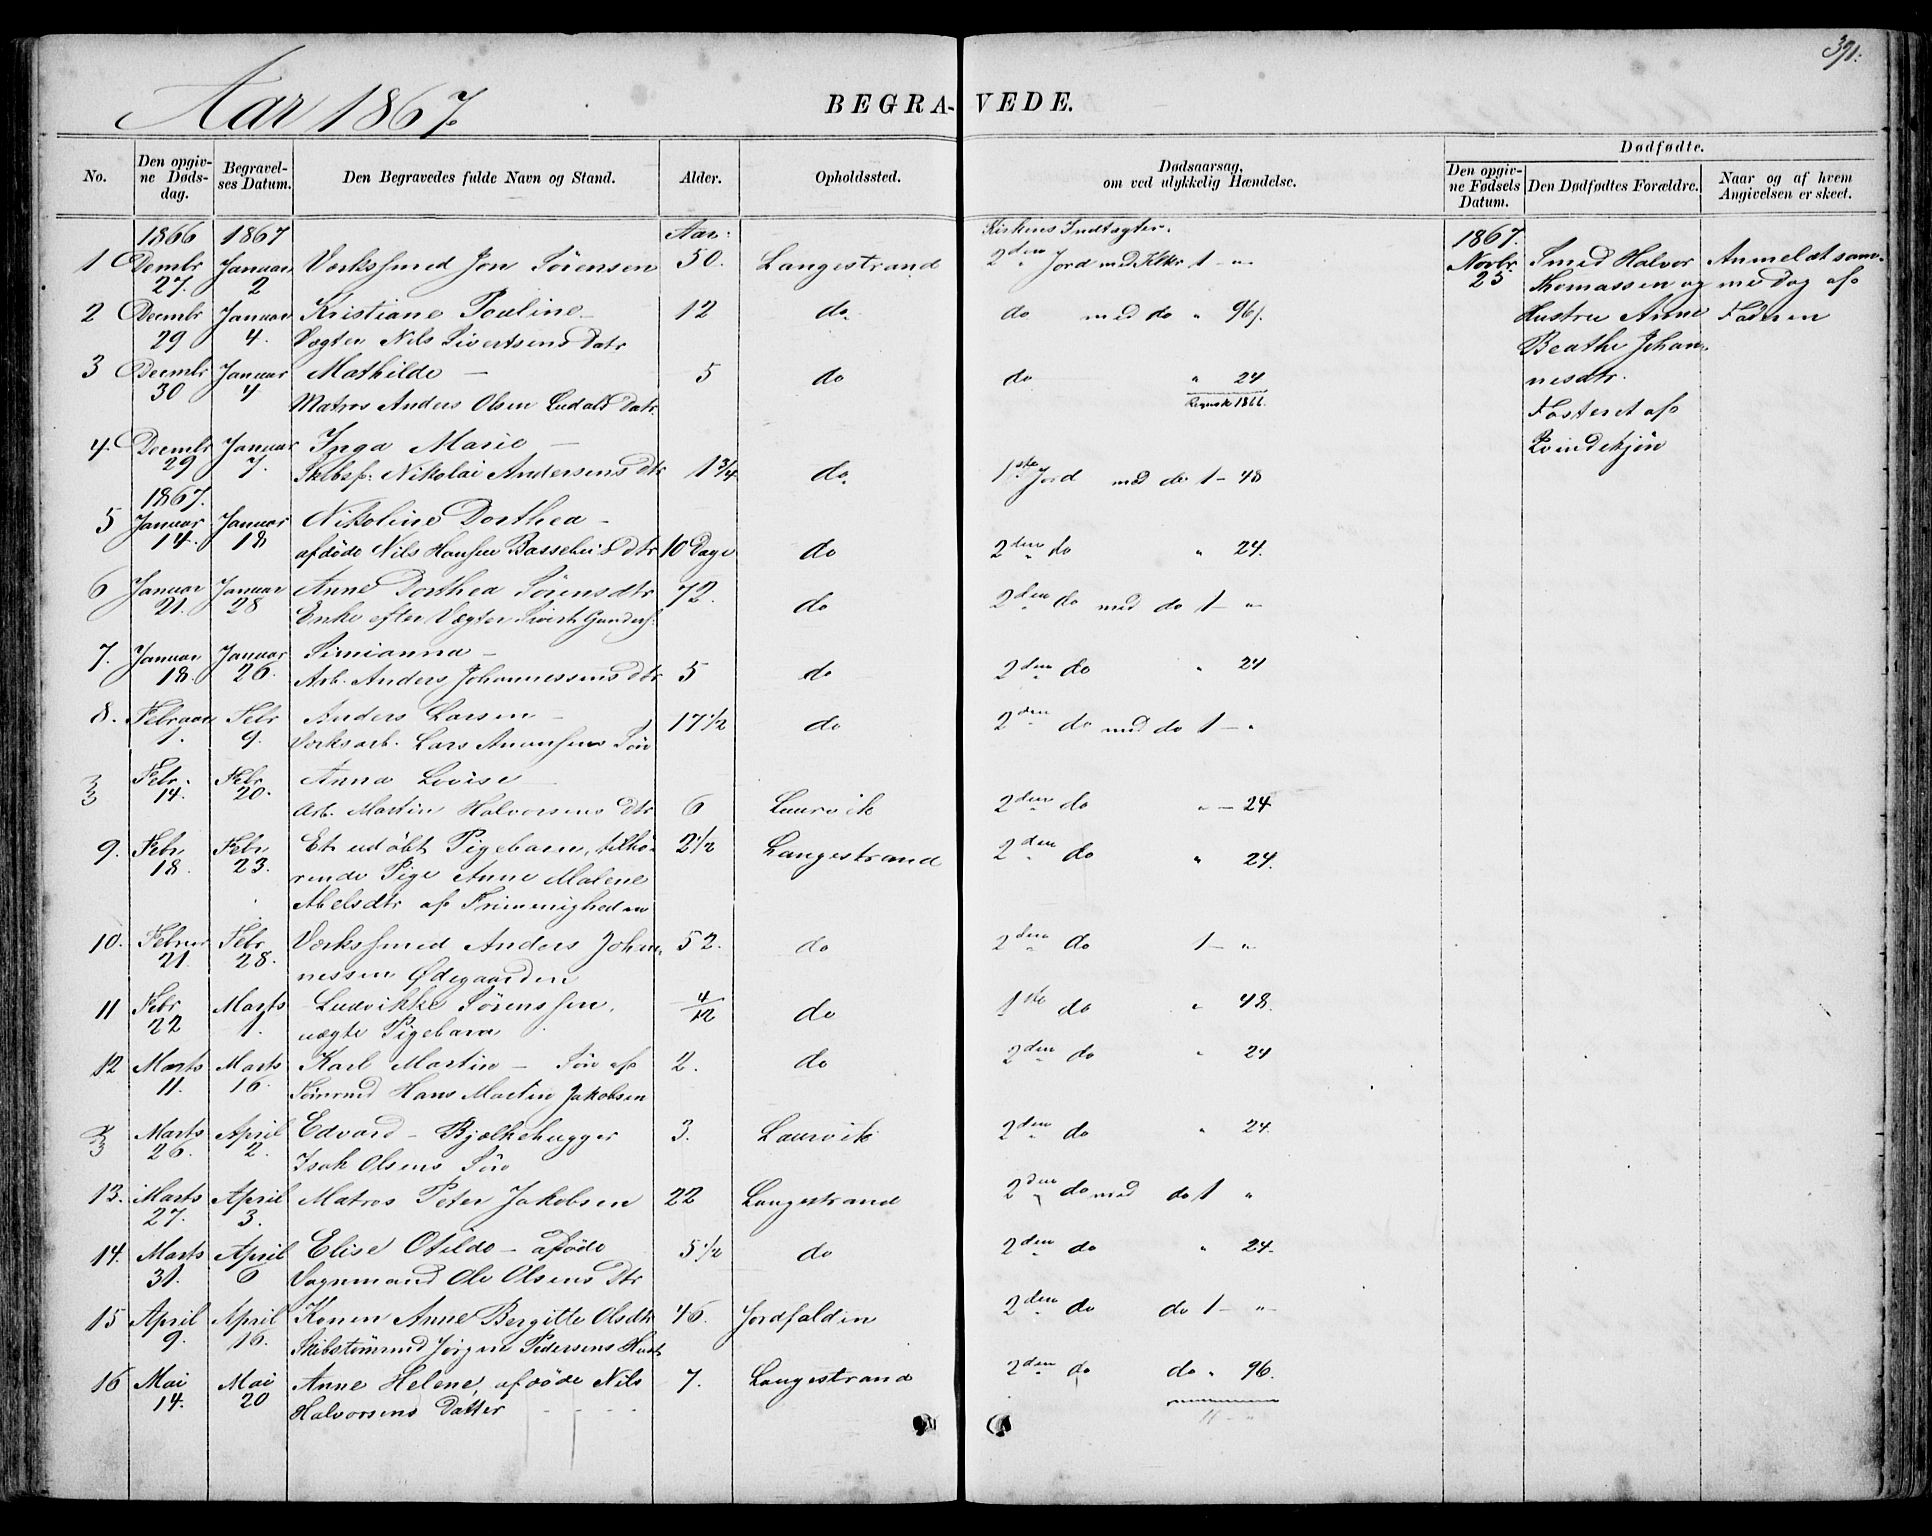 391.
Aar 1867.
BEGRAVEDE.
No. | Den opgivne Dødsdag. | Begravelses Datum. | Den Begravedes fulde Navn og Stand. | Alder. | Opholdssted. | Dødsaarsag, om ved ulykkelig Hændelse. | Dødfødte. Den opgivne Fødsels Datum. | Den Dødfødtes Forældre. | Naar og af hvem Angivelsen er skeet.
1866 | 1867 | Aar. | Kirkens Indtægter. | 1867.
1 | Decmbr 27. | Januar 2 | Værkssmed Jon Sørensen | 50. | Langestrand | 2den Jord med Klkr 1 - "
2 | Decmbr 29 | Januar 4. | Kristiane Pauline -
Vægter Nils Sivertsens Datr | 12 | do. | do med do " 96.
3 | Decmbr 30 | Januar 4 | Mathilde -
Matros Anders Olsen Datr | 5 | do | do " 24
1866.
4. | Decmbr 29 | Januar 7. | Inga Marie -
Skbsf: Nikolai Andersens Dtr | 1 3/4 | do. | 1ste Jord med do 1 - 48
1867.
5 | Januar 14. | Januar 18 | Nikoline Dorthea -
afdøde Nils Hansen Dtr | 10 Dage | do | 2den do " 24.
6 | Januar 21. | Januar 28 | Anne Dorthea Sørensdtr
Enke efter Vægter Sivert Gunders: | 72. | do | 2den do med do 1 - "
7. | Januar 18. | Januar 26. | Simianna -
Arb. Anders Johannessens Dtr | 5 | do | 2den do " 24
8. | Februar 1. | Febr 9. | Anders Larsen -
Værksarb. Lars Søn | 17 1/2 | do | 2den do med do 1 - "
Febr. 14. | Febr 20. | Anna Lovise -
Arb. Martin Halvorsens Dtr | 6 | Laurvik | 2den do " - 24
9. | Febr 18. | Febr 23. | Et udøbt Pigebarn, tilhø-
rende Pige Anne Malene
Abelsdtr af Frimenigheden | 2 1/2 | Langestrand | 2den do " 24.
10. | Februar 21. | Febr 28. | Værkssmed Anders Johan-
nessen Ødegaarden | 52. | do | 2den do 1 - "
11 | Febr 22 | Marts 1. | Ludvikke Sørenssen,
uægte Pigebarn | 4/12 | do | 1ste do " 48.
12 | Marts 11. | Marts 16. | Karl Martin - Søn af
Tømrmd Hans Martin Jakobsen | 2. | do | 2den do " 24
Marts 26. | April 2. | Edvard - Bjelkehugger
Isak Olsens Søn | 3. | Laurvik | 2den do " 24.
13. | Marts 27. | April 3. | Matros Peter Jakobsen | 22 | Langestrand | 2den do med do 1 "
14. | Marts 31. | April 6 | Elise Otilde - afdøde
Vognmand Ole Olsens Dtr | 5 1/2 | do | 2den do " 24.
15 | April 9. | April 16. | Konen Anne Bergitte Olsdtr
Skibstømmd Jørgen Pedersens Hust | 46. | Jordfalden | 2den do do 1 - "
16 | Mai 14. | Mai 20 | Anne Helene, afdøde Nils
Halvorsens Datter | 7. | Langestrand | 2den do do " 96.
11 - "
Novbr 23 | Smed Halvor
Thomassen og
Hustru Anne
Beathe Johan-
nesdtr.
Fosteret af
Qvindekjøn | Anmeldt sam-
me Dag af
Faderen